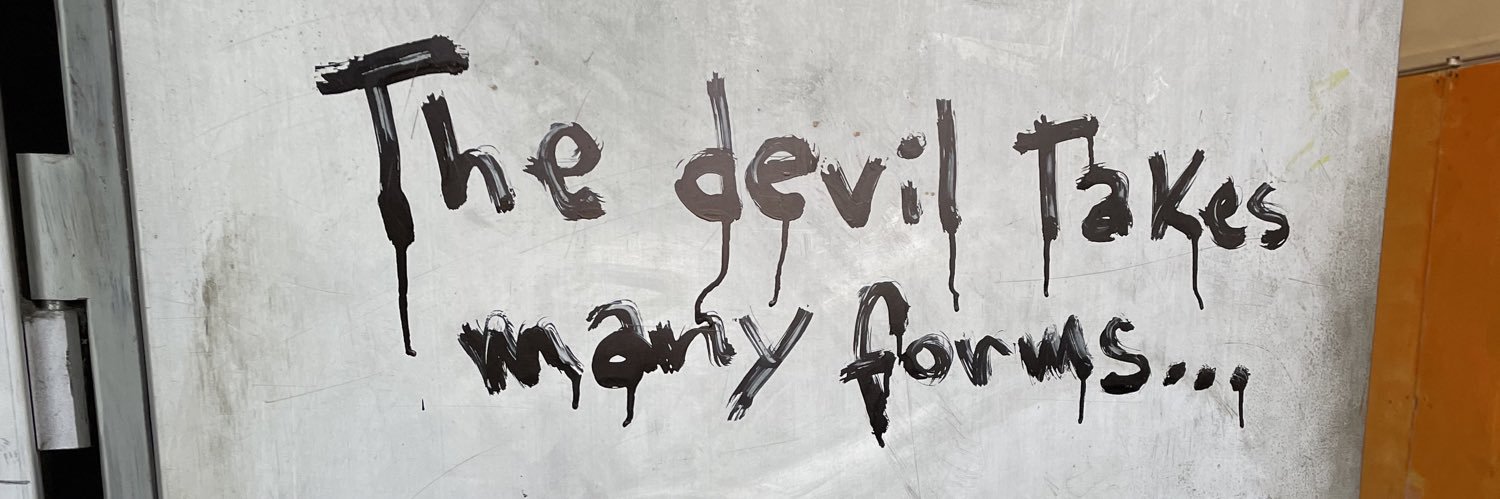 The devil Takes
many forms...